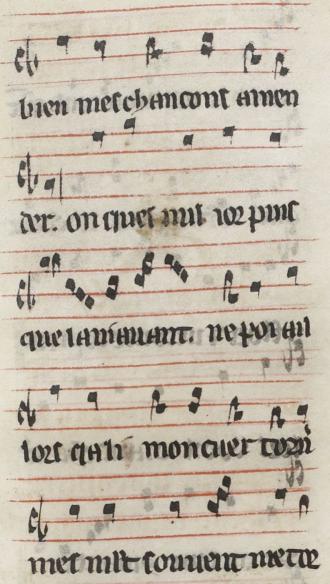 bien mes chancons amen
der. onques nul ior puis
que ianiauant. ne poi ail
lors qali mon cuer torñ
mes mlt souuent me